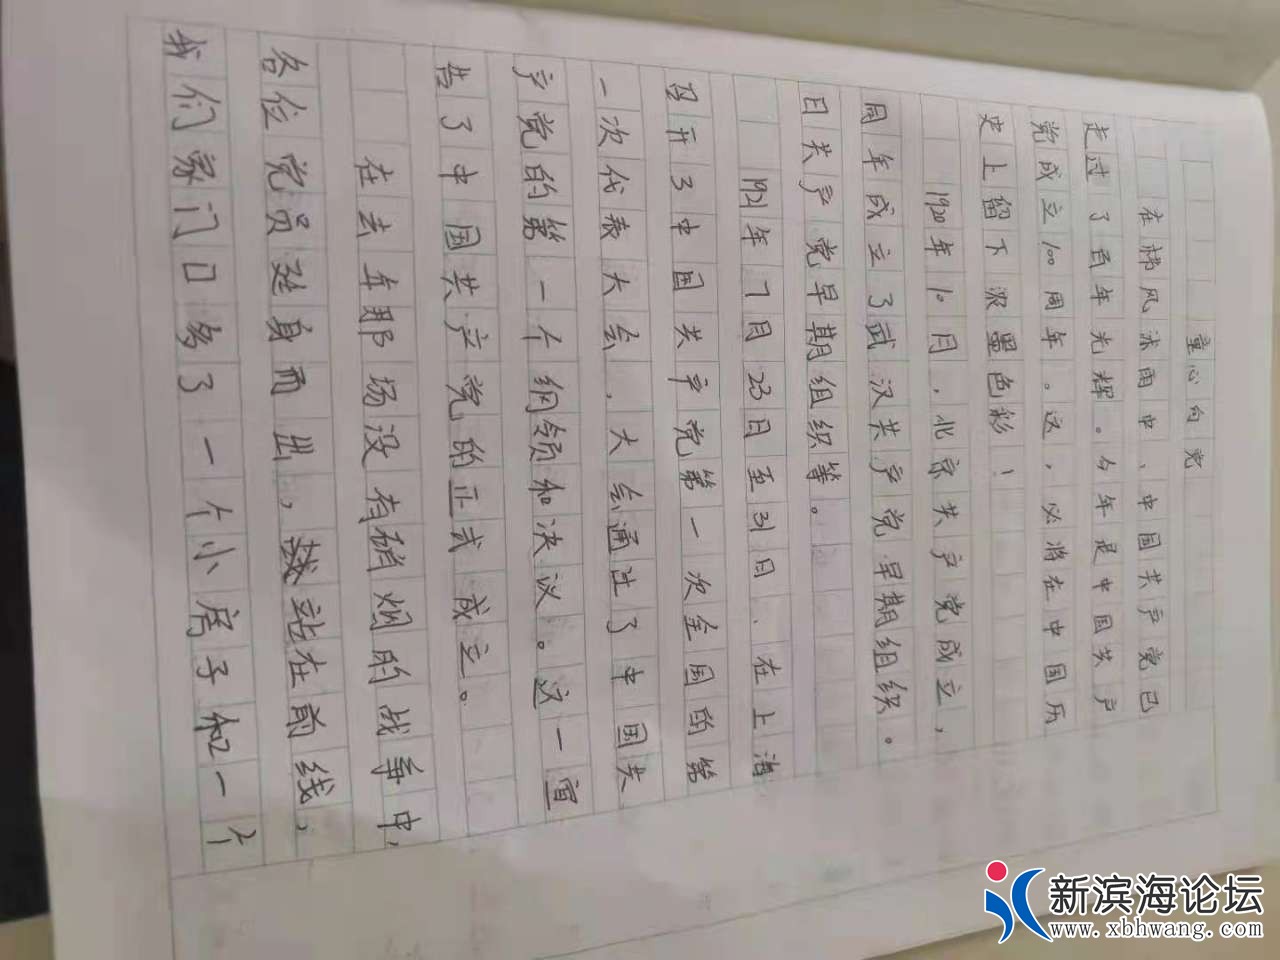 童心向党
在栉风沐雨中、中国共产党已
走过了百年光辉。今年是中国共产
党成立100周年。这,必将在中国历
史上留下浓墨色彩!
1920年10月,北京共产党成立,
同年成立了武汉共产党早期组织。
日共产党早期组织等。
1921年7月23日至31日、在上海
召开了中国共产党第一次全国的第
一次代表大会,大会通过了中国共
产党的第一个纲领和决议。这一宣
告了中国共产党的正式成立。
在去年那场没有硝烟的战争中,
各位党员挺身而出,站在前线,
我们家门口多了一个小房子和一个
新滨海论坛
www.xbhwang.com